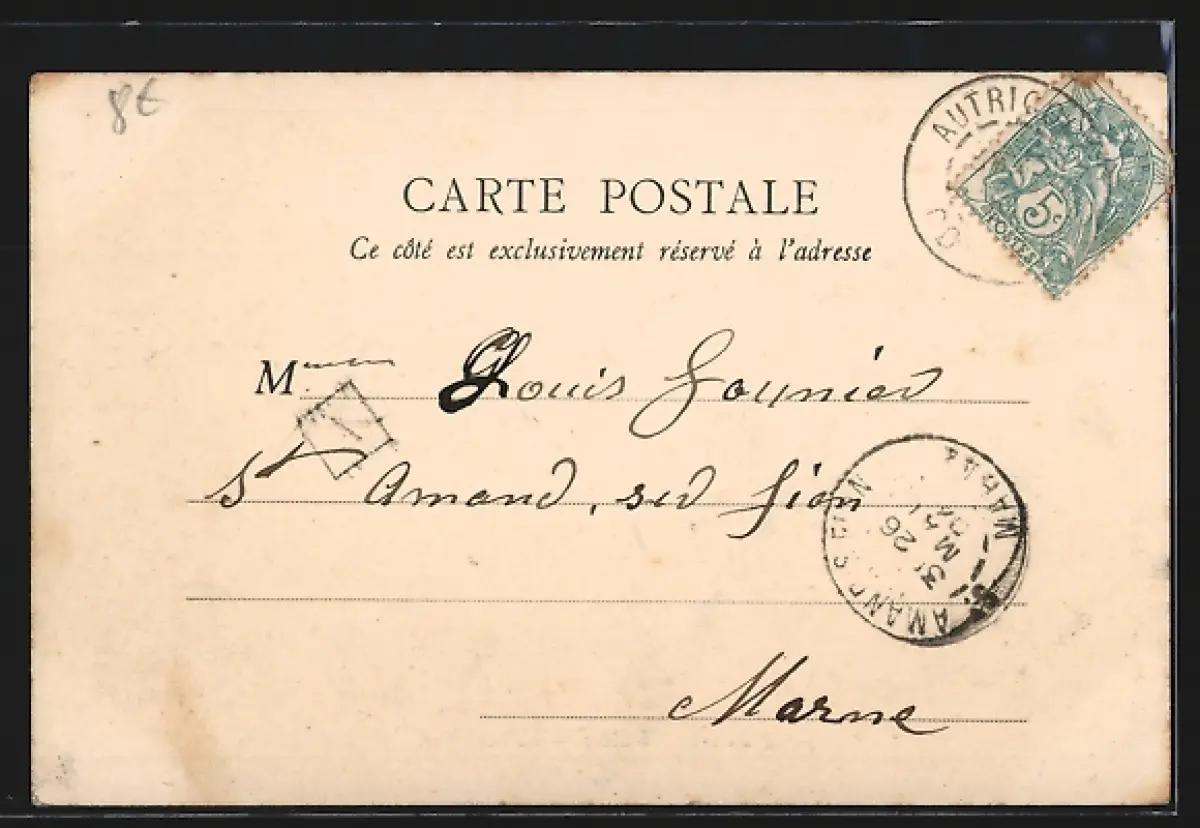 8€
AUTRIC
CO
5c
POSTES
CARTE POSTALE
Ce côté est exclusivement réservé à l'adresse
M
Louis
St Amand, sur fion
MARNE
26
3
AMAND S FION
Marne